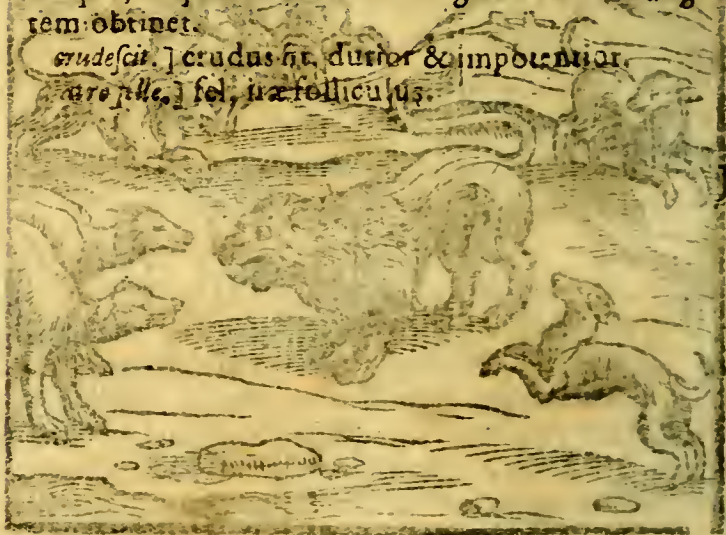 tem obtinet.
crudescit.] crudus fit, durior & impotentior.
fel, iræ folliculus.